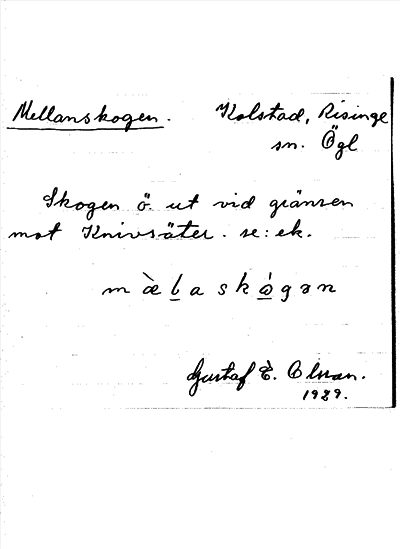 Mellanskogen. Kolstad, Risinge
sn. Ögl
Skogen ö. ut vid gränsen
mot Knivsäter. se: ek.
m æ̀ l a s k ó g ə n
Gustaf E. Olsson.
1929.